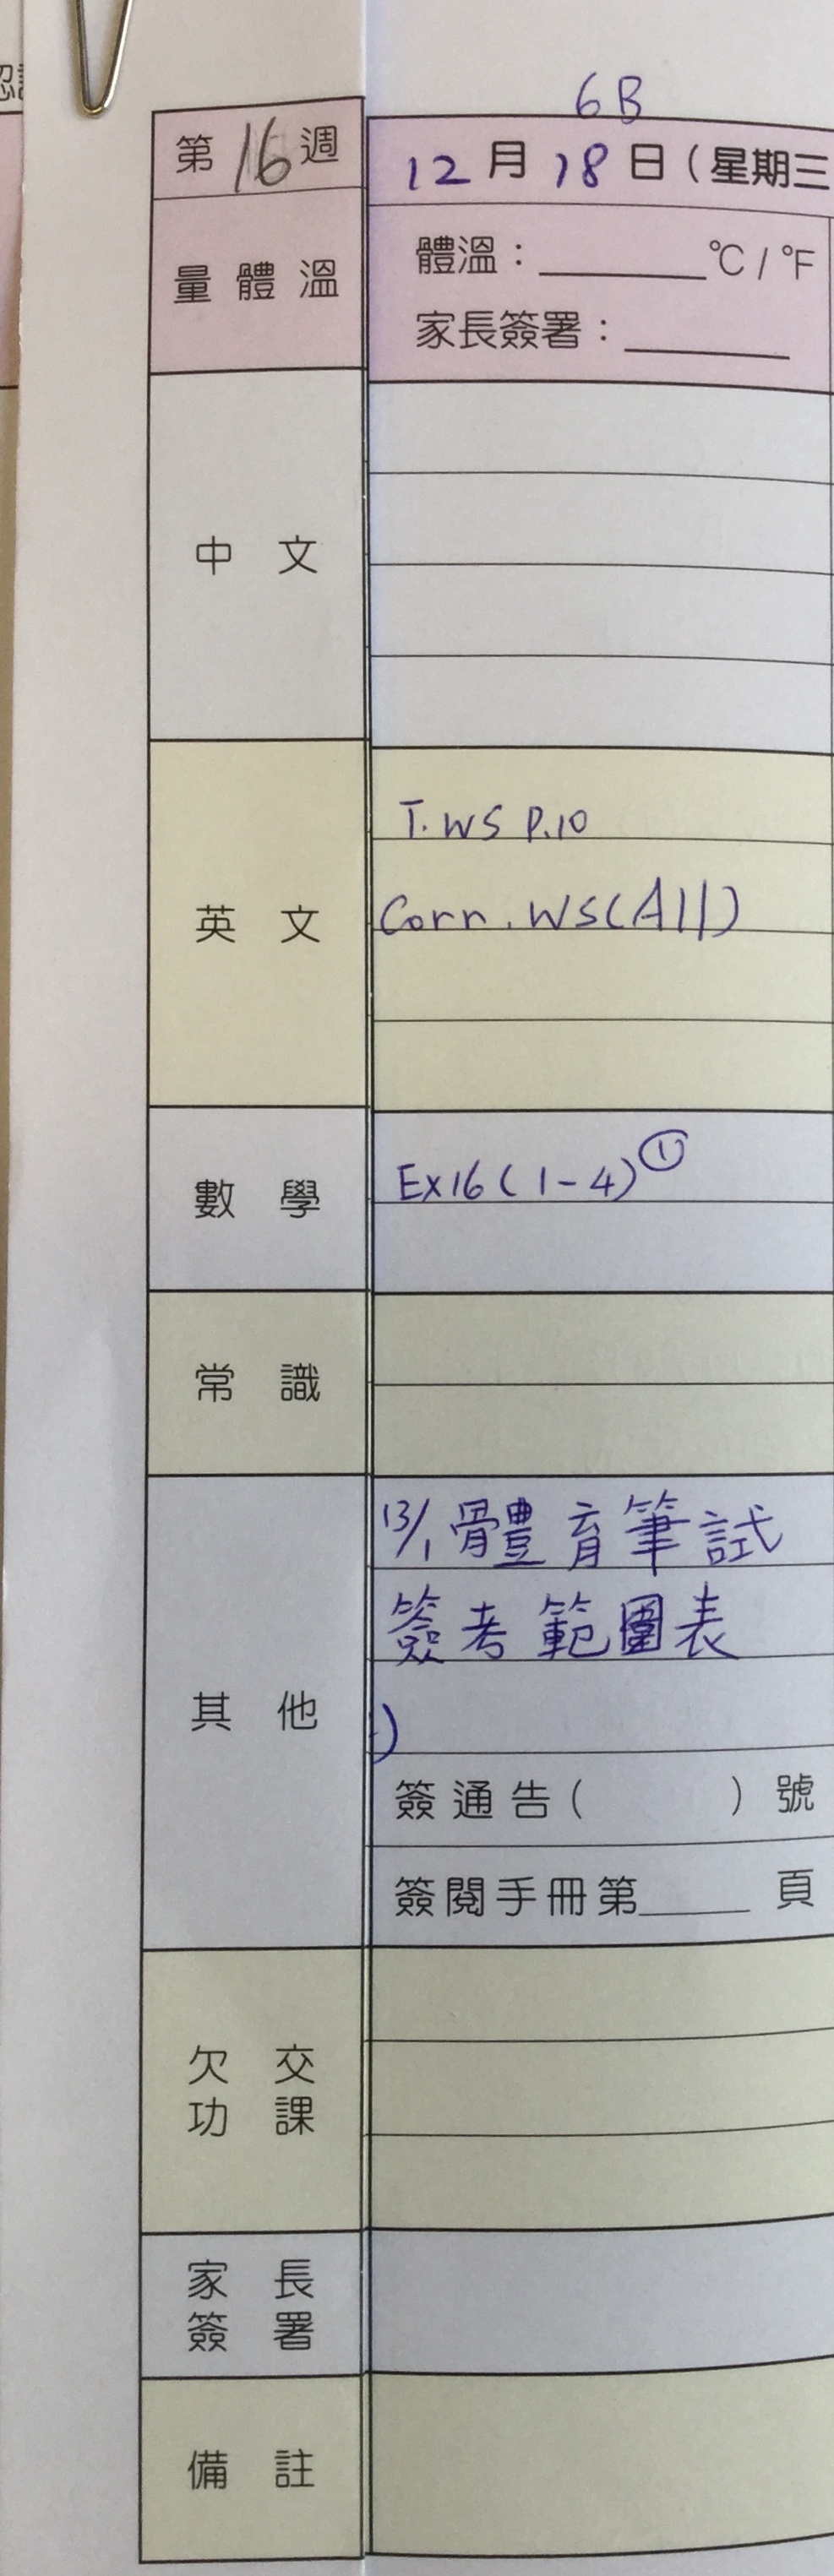 6B
第16週
12月18日(星期三
量體溫
體溫：______℃/℉
家長簽署：______
中文
英文
T. WS P.10
Corr. WS(All)
數學
Ex16(1-4)①
常識
其他
13/1 體育筆試
簽考範圍表
簽通告( )號
簽閱手冊第____頁
欠交
功課
家長
簽署
備註